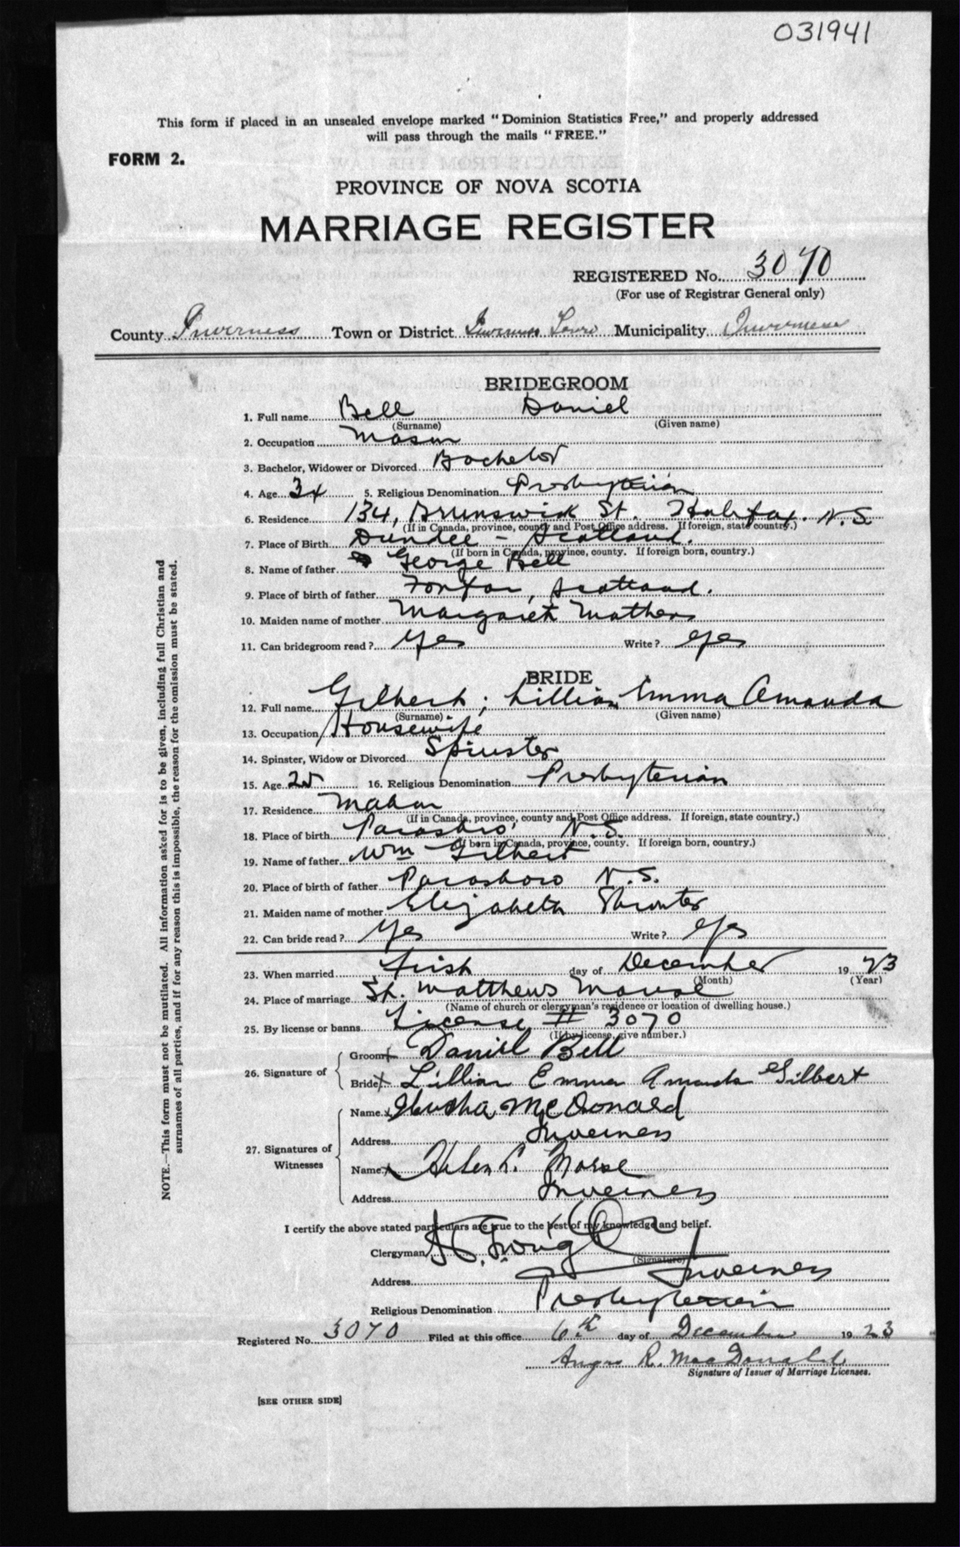 031941
This form if placed in an unsealed envelope marked "Dominion Statistics Free," and properly addressed
will pass through the mails "FREE."
FORM 2.
PROVINCE OF NOVA SCOTIA
MARRIAGE REGISTER
REGISTERED No. 3070
(For use of Registrar General only)
County Inverness Town or District Inverness Town Municipality Inverness
BRIDEGROOM
1. Full name Bell Daniel
(Surname) (Given name)
2. Occupation Mason
3. Bachelor, Widower or Divorced Bachelor
4. Age 34 5. Religious Denomination Presbyterian
6. Residence 134, Brunswick St. Halifax. N.S.
(If in Canada, province, county and Post Office address. If foreign, state country.)
7. Place of Birth Dundee - Scotland.
(If born in Canada, province, county. If foreign born, country.)
8. Name of father George Bell
9. Place of birth of father Forfar, Scotland.
10. Maiden name of mother Margaret Mathers
11. Can bridegroom read? Yes Write? Yes
BRIDE
12. Full name Gilbert; Lillian Emma Amanda
(Surname) (Given name)
13. Occupation Housewife
14. Spinster, Widow or Divorced Spinster
15. Age 25 16. Religious Denomination Presbyterian
17. Residence Mabou
(If in Canada, province, county and Post Office address. If foreign, state country.)
18. Place of birth Parrsboro, N.S.
(If born in Canada, province, county. If foreign born, country.)
19. Name of father Wm Gilbert
20. Place of birth of father Parrsboro N.S.
21. Maiden name of mother Elizabeth
22. Can bride read? Yes Write? Yes
23. When married First day of December 1923
(Month) (Year)
24. Place of marriage St. Matthews Manse
(Name of church or clergyman's residence or location of dwelling house.)
25. By license or banns License # 3070
(If by license, give number.)
26. Signature of
Groom x Daniel Bell
Bride x Lillian Emma Amanda Gilbert
27. Signatures of Witnesses
Name x McDonald
Address Inverness
Name x Helen L. Morse
Address Inverness
I certify the above stated particulars are true to the best of my knowledge and belief.
Clergyman
(Signature)
Address Inverness
Religious Denomination Presbyterian
Registered No. 3070 Filed at this office 6th day of December 1923
Angus R. MacDonald
Signature of Issuer of Marriage Licenses.
[SEE OTHER SIDE]
NOTE.—This form must not be mutilated. All information asked for is to be given, including full Christian and
surnames of all parties, and if for any reason this is impossible, the reason for the omission must be stated.